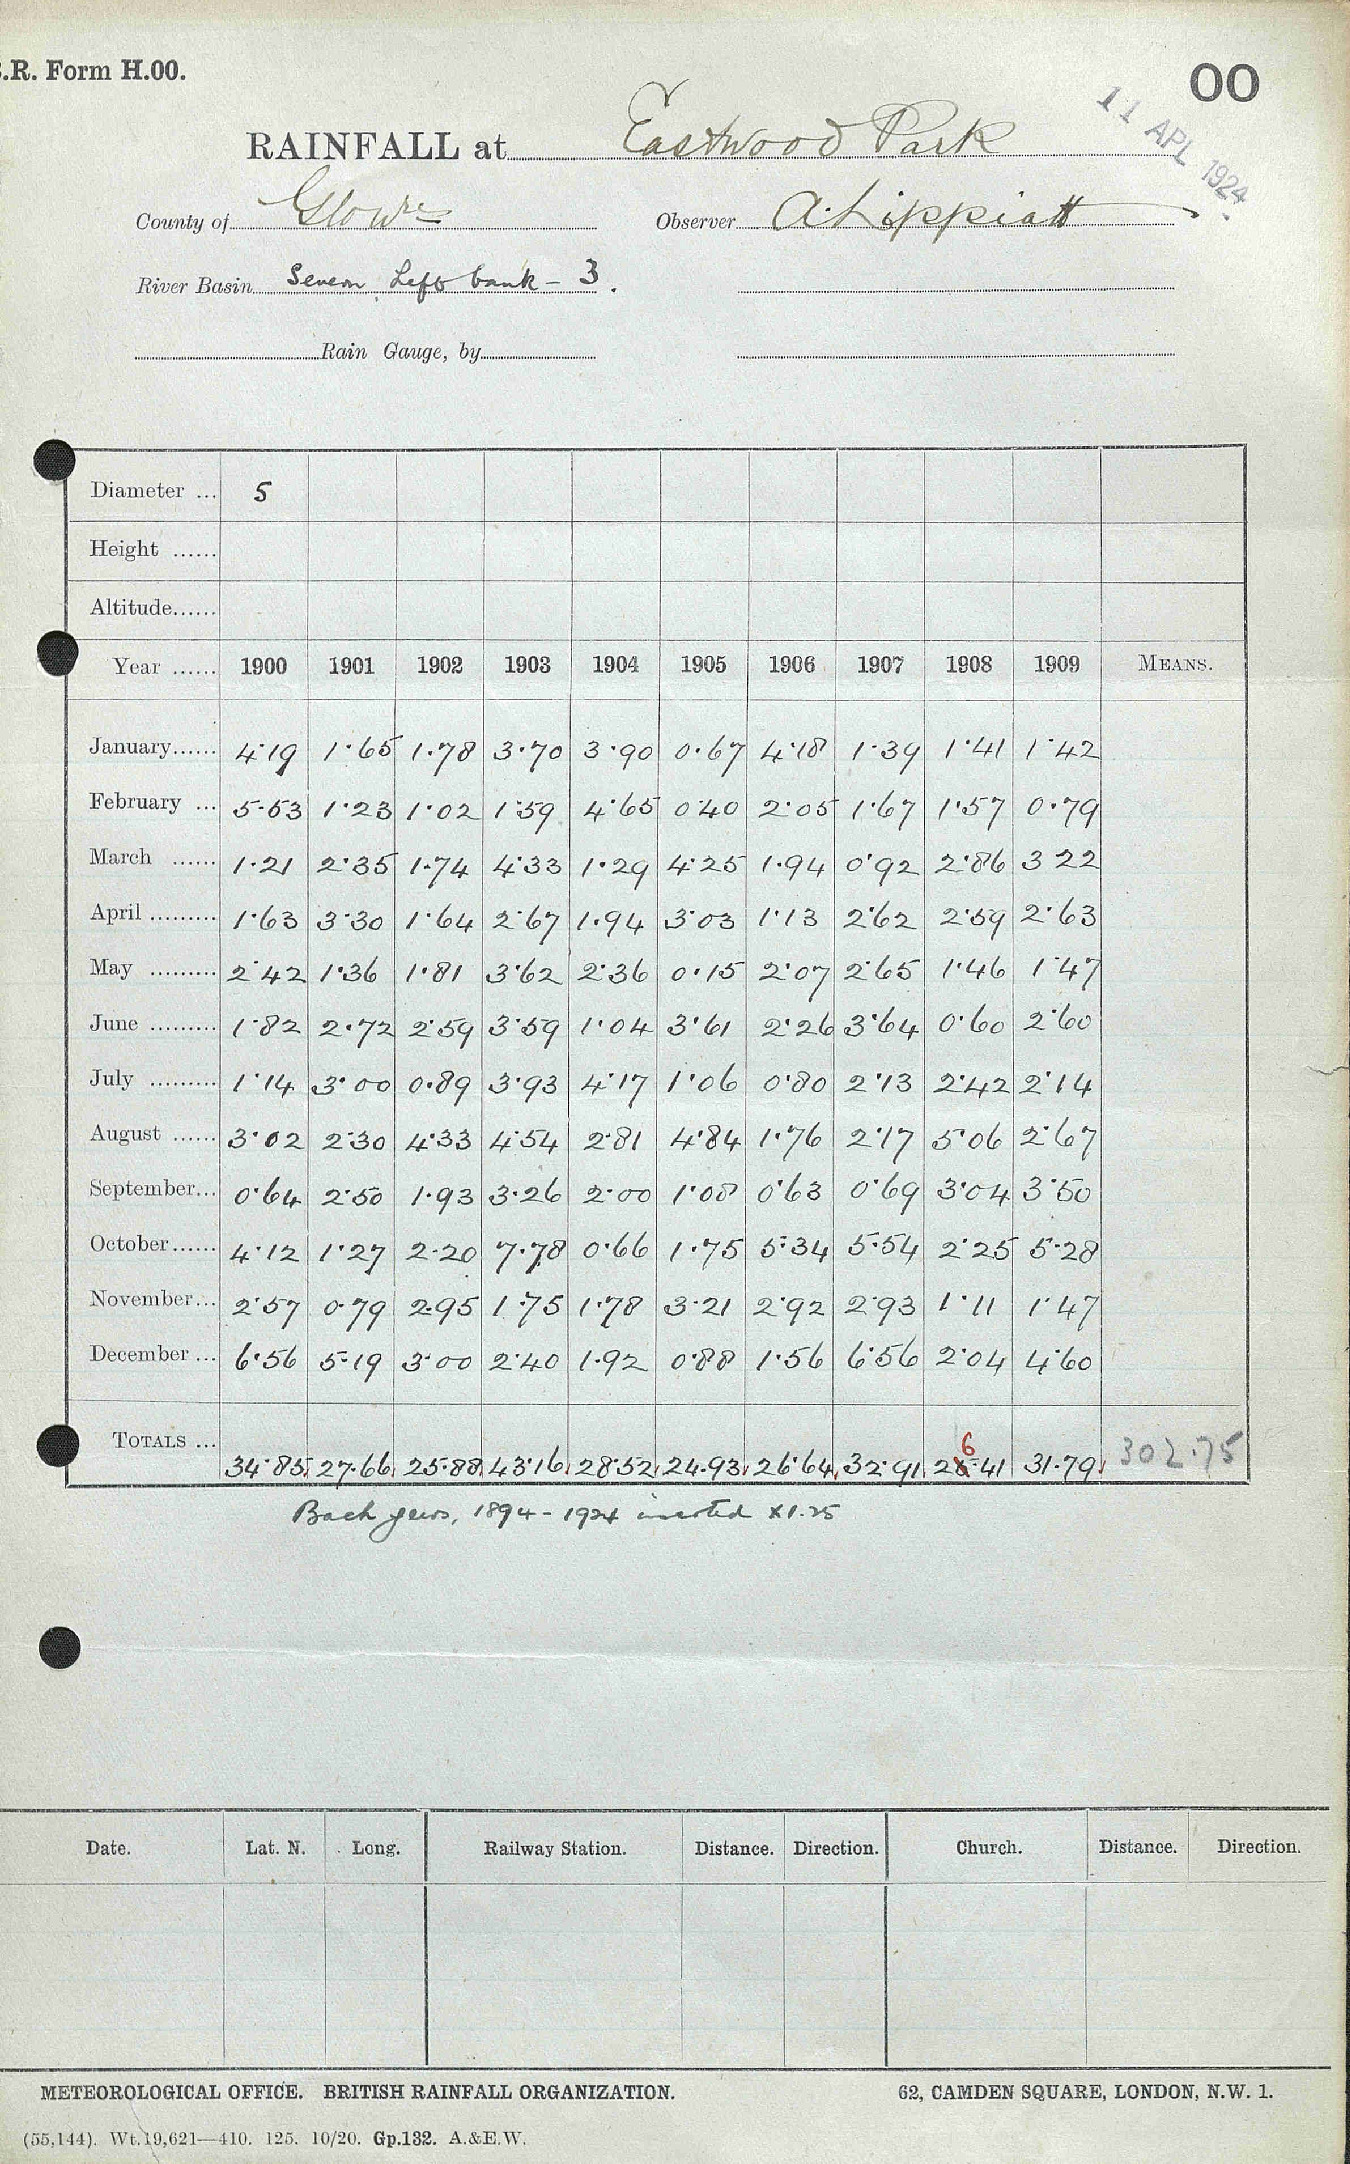 .R. Form H.00.
00
11 APL 1924
RAINFALL at Eastwood Park
County of Glow're Observer A. Lippiatt
River Basin Severn, Left bank - 3.
Rain Gauge, by
Diameter ... 5
Height ......
Altitude......
Year ...... 1900 1901 1902 1903 1904 1905 1906 1907 1908 1909 MEANS.
January...... 4·19 1·65 1·78 3·70 3·90 0·67 4·18 1·39 1·41 1·42
February ... 5·53 1·23 1·02 1·59 4·65 0·40 2·05 1·67 1·57 0·79
March ...... 1·21 2·35 1·74 4·33 1·29 4·25 1·94 0·92 2·86 3 22
April ......... 1·63 3·30 1·64 2·67 1·94 3·03 1·13 2·62 2·59 2·63
May ......... 2·42 1·36 1·81 3·62 2·36 0·15 2·07 2·65 1·46 1·47
June ......... 1·82 2·72 2·59 3·59 1·04 3·61 2·26 3·64 0·60 2·60
July ......... 1·14 3·00 0·89 3·93 4·17 1·06 0·80 2·13 2·42 2·14
August ...... 3·02 2·30 4·33 4·54 2·81 4·84 1·76 2·17 5·06 2·67
September... 0·64 2·50 1·93 3·26 2·00 1·08 0·63 0·69 3·04 3·50
October...... 4·12 1·27 2·20 7·78 0·66 1·75 5·34 5·54 2·25 5·28
November... 2·57 0·79 2·95 1·75 1·78 3·21 2·92 2·93 1·11 1·47
December ... 6·56 5·19 3·00 2·40 1·92 0·88 1·56 6·56 2·04 4·60
TOTALS ... 34·85 27·66 25·88 43·16 28·52 24·93 26·64 32·91 26·41 31·79 302·75
Back years, 1894 - 1924 inserted X1.25
Date. Lat. N. Long. Railway Station. Distance. Direction. Church. Distance. Direction.
METEOROLOGICAL OFFICE. BRITISH RAINFALL ORGANIZATION. 62, CAMDEN SQUARE, LONDON, N.W. 1.
(55,144). Wt.19,621—410. 125. 10/20. Gp.132. A.&E.W.